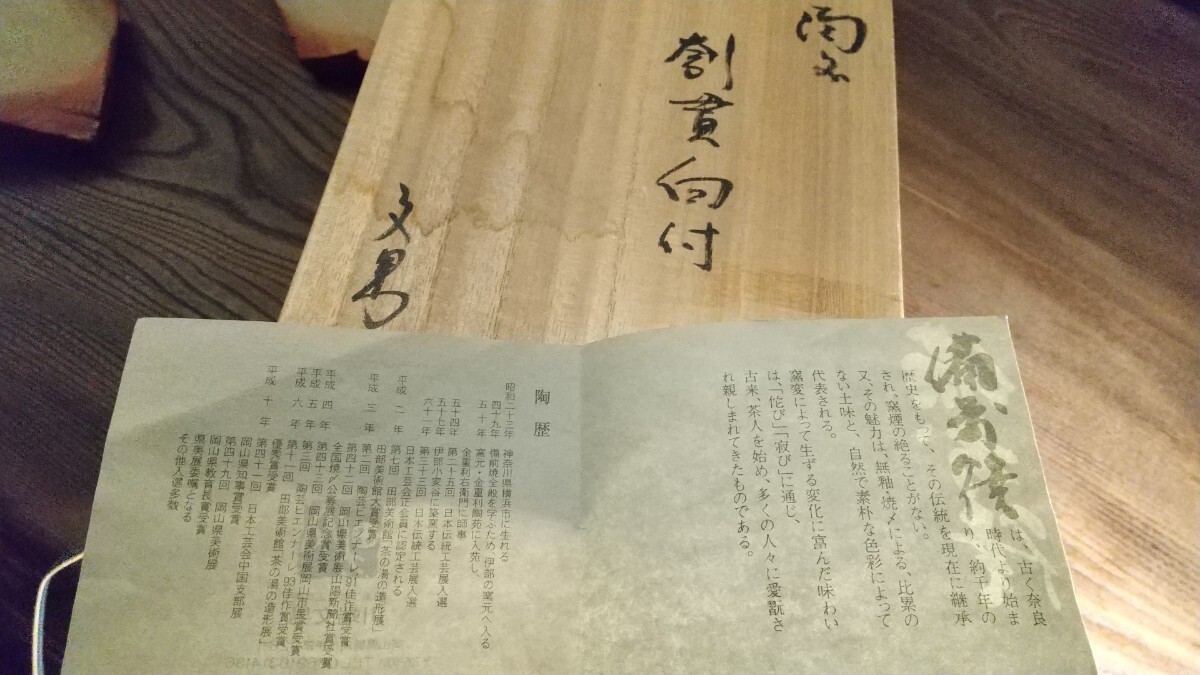 備前
割貫向付
文男
備前焼
は、古く奈良
時代より始ま
り、約千年の
歴史をもって、その伝統を現在に継承
され、窯煙の絶ることがない。
又、その魅力は、無釉・焼〆による、比累の
ない土味と、自然で素朴な色彩によって
代表される。
窯変によって生ずる変化に富んだ味わい
は、「侘び」「寂び」に通じ、
古来、茶人を始め、多くの人々に愛翫さ
れ親しまれてきたものである。
陶歴
昭和二十三年 神奈川県横浜市に生れる
四十九年 備前焼全般を学ぶため、伊部の窯元へ入る
五十年 窯元・金重利陶苑に入苑し、
金重利右衛門に師事
五十四年 第二十五回 日本伝統工芸展入選
五十七年 伊部小家谷に築窯する
六十一年 第三十三回 日本伝統工芸展入選
日本工芸会正会員に認定される
平成二年 第七回 田部美術館「茶の湯の造形展」
田部美術館大賞受賞
平成三年 第二回 陶芸ビエンナーレ'91佳作賞受賞
第四十二回 岡山県美術展山陽新聞社賞受賞
全国焼〆公募展記念賞受賞
平成四年 第四十三回 岡山県美術展岡山市長賞受賞
平成五年 第三回 陶芸ビエンナーレ'93佳作賞受賞
平成六年 第十一回 田部美術館「茶の湯の造形展」
優秀賞受賞
平成十年 第四十一回 日本工芸会中国支部展
岡山県知事賞受賞
第四十九回 岡山県美術展
岡山県教育長賞受賞
県美展委嘱となる
その他入選多数